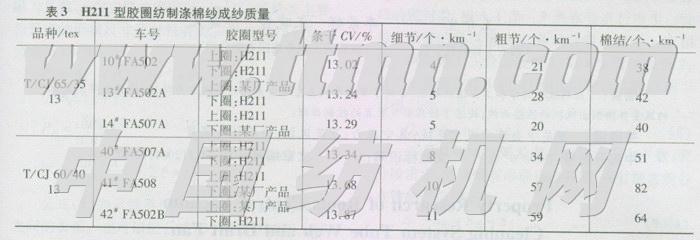 表 3 H211 型胶圈纺制涤棉纱成纱质量
品种/tex 车号 胶圈型号 条干 CV/% 细节/个·km⁻¹ 粗节/个·km⁻¹ 棉结/个·km⁻¹
T/CJ 65/35 13
10# FA502 上圈:H211 下圈:H211 13.02 4 21 38
13# FA502A 上圈:某厂产品 下圈:H211 13.24 5 28 42
14# FA507A 上圈:H211 下圈:某厂产品 13.29 5 20 40
T/CJ 60/40 13
40# FA507A 上圈:H211 下圈:H211 13.34 8 34 51
41# FA508 上圈:H211 下圈:某厂产品 13.68 10 57 82
42# FA502B 上圈:某厂产品 下圈:H211 13.87 11 59 64
www.ttmn.com
中国纺机网